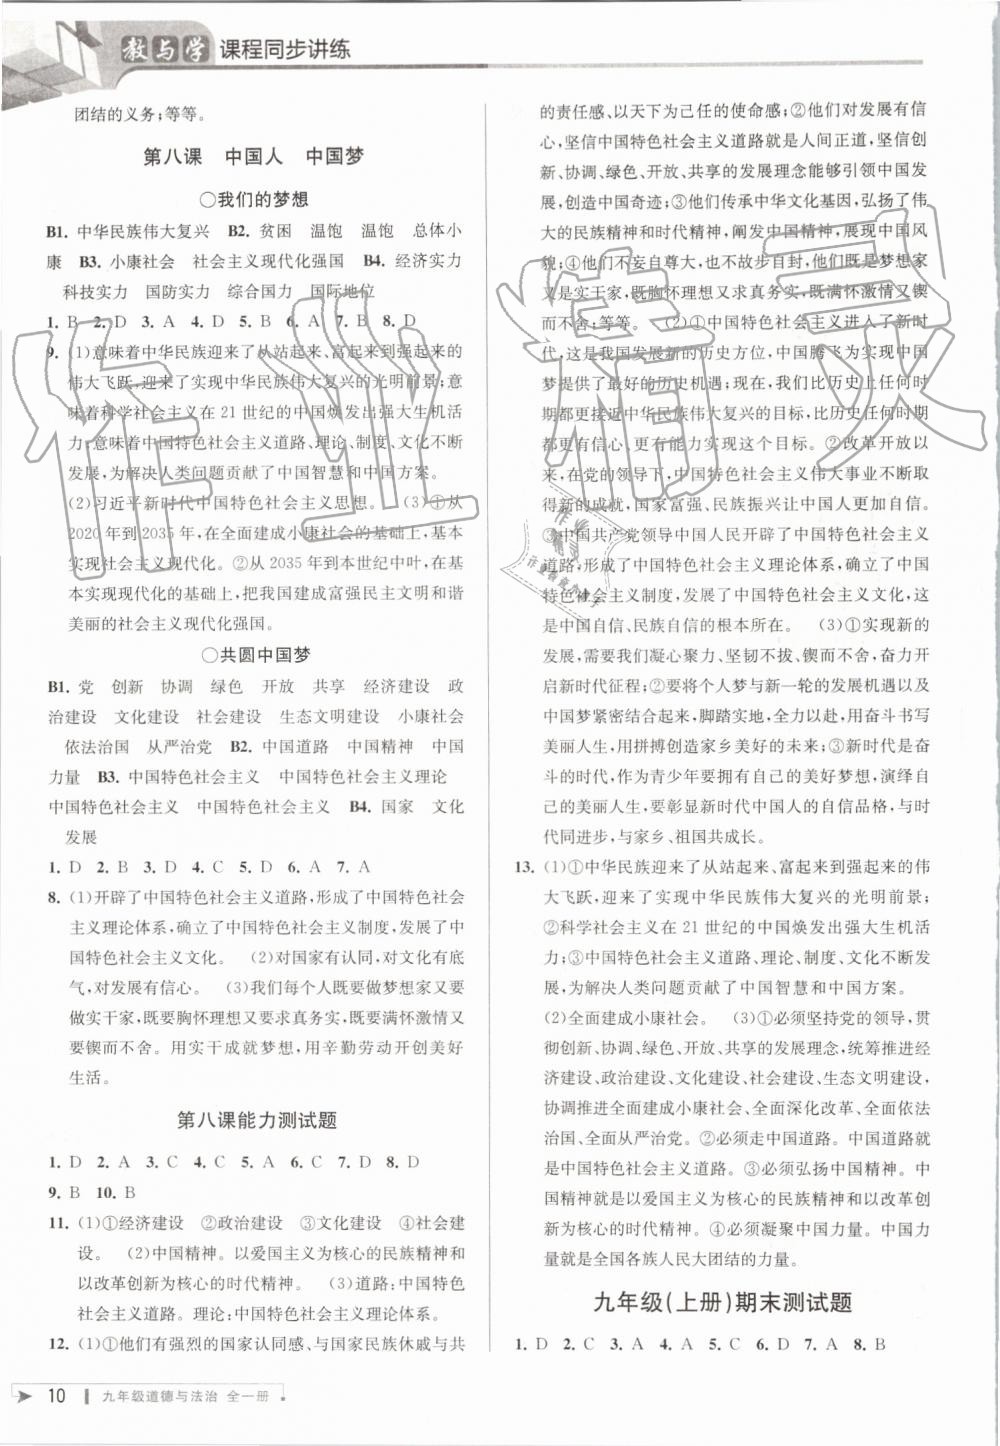 教与学 课程同步讲练
团结的义务;等等。
第八课 中国人 中国梦
○我们的梦想
B1. 中华民族伟大复兴 B2. 贫困 温饱 温饱 总体小
康 B3. 小康社会 社会主义现代化强国 B4. 经济实力
科技实力 国防实力 综合国力 国际地位
1. B 2. D 3. A 4. D 5. B 6. A 7. B 8. D
9. (1)意味着中华民族迎来了从站起来、富起来到强起来的
伟大飞跃,迎来了实现中华民族伟大复兴的光明前景;意
味着科学社会主义在 21 世纪的中国焕发出强大生机活
力;意味着中国特色社会主义道路、理论、制度、文化不断
发展,为解决人类问题贡献了中国智慧和中国方案。
(2)习近平新时代中国特色社会主义思想。 (3)①从
2020 年到 2035 年,在全面建成小康社会的基础上,基本
实现社会主义现代化。②从 2035 年到本世纪中叶,在基
本实现现代化的基础上,把我国建成富强民主文明和谐
美丽的社会主义现代化强国。
○共圆中国梦
B1. 党 创新 协调 绿色 开放 共享 经济建设 政
治建设 文化建设 社会建设 生态文明建设 小康社会
依法治国 从严治党 B2. 中国道路 中国精神 中国
力量 B3. 中国特色社会主义 中国特色社会主义理论
中国特色社会主义 中国特色社会主义 B4. 国家 文化
发展
1. D 2. B 3. D 4. C 5. D 6. A 7. A
8. (1)开辟了中国特色社会主义道路,形成了中国特色社会
主义理论体系,确立了中国特色社会主义制度,发展了中
国特色社会主义文化。 (2)对国家有认同,对文化有底
气,对发展有信心。 (3)我们每个人既要做梦想家又要
做实干家,既要胸怀理想又要求真务实,既要满怀激情又
要锲而不舍。用实干成就梦想,用辛勤劳动开创美好
生活。
第八课能力测试题
1. D 2. A 3. C 4. C 5. A 6. C 7. D 8. D
9. B 10. B
11. (1)①经济建设 ②政治建设 ③文化建设 ④社会建
设。 (2)中国精神。以爱国主义为核心的民族精神和
以改革创新为核心的时代精神。 (3)道路:中国特色
社会主义道路。理论:中国特色社会主义理论体系。
12. (1)①他们有强烈的国家认同感、与民族休戚与共
的责任感、以天下为己任的使命感;②他们对发展有信
心,坚信中国特色社会主义道路就是人间正道,坚信创
新、协调、绿色、开放、共享的发展理念能够引领中国发
展,创造中国奇迹;③他们传承中华文化基因,弘扬了伟
大的民族精神和时代精神,阐发中国精神,展现中国风
貌;④他们不妄自尊大,也不故步自封,他们既是梦想家
又是实干家,既胸怀理想又求真务实,既满怀激情又锲
而不舍;等等。 (2)①中国特色社会主义进入了新时
代,这是我国发展新的历史方位,中国腾飞为实现中国
梦提供了最好的历史机遇;现在,我们比历史上任何时
期都更接近中华民族伟大复兴的目标,比历史上任何时
期都更有信心、更有能力实现这个目标。②改革开放以
来,在党的领导下,中国特色社会主义伟大事业不断取
得新的成就,国家富强、民族振兴让中国人更加自信。
③中国共产党领导中国人民开辟了中国特色社会主义
道路,形成了中国特色社会主义理论体系,确立了中国特
色社会主义制度,发展了中国特色社会主义文化,这
是中国自信、民族自信的根本所在。 (3)①实现新的
发展,需要我们凝心聚力、坚韧不拔、锲而不舍,奋力开
启新时代征程;②要将个人梦与新一轮的发展机遇以及
中国梦紧密结合起来,脚踏实地,全力以赴,用奋斗书写
美丽人生,用拼搏创造家乡美好的未来;③新时代是奋
斗的时代,作为青少年要拥有自己的美好梦想,演绎自
己的美丽人生,要彰显新时代中国人的自信品格,与时
代同进步,与家乡、祖国共成长。
13. (1)①中华民族迎来了从站起来、富起来到强起来的伟
大飞跃,迎来了实现中华民族伟大复兴的光明前景;
②科学社会主义在 21 世纪的中国焕发出强大生机活
力;③中国特色社会主义道路、理论、制度、文化不断发
展,为解决人类问题贡献了中国智慧和中国方案。
(2)全面建成小康社会。 (3)①必须坚持党的领导,贯
彻创新、协调、绿色、开放、共享的发展理念,统筹推进经
济建设、政治建设、文化建设、社会建设、生态文明建设,
协调推进全面建成小康社会、全面深化改革、全面依法
治国、全面从严治党。②必须走中国道路。中国道路就
是中国特色社会主义道路。③必须弘扬中国精神。中
国精神就是以爱国主义为核心的民族精神和以改革创
新为核心的时代精神。④必须凝聚中国力量。中国力
量就是全国各族人民大团结的力量。
九年级(上册)期末测试题
1. D 2. C 3. A 4. C 5. B 6. D 7. A 8. B
10 九年级道德与法治 全一册
作业精灵